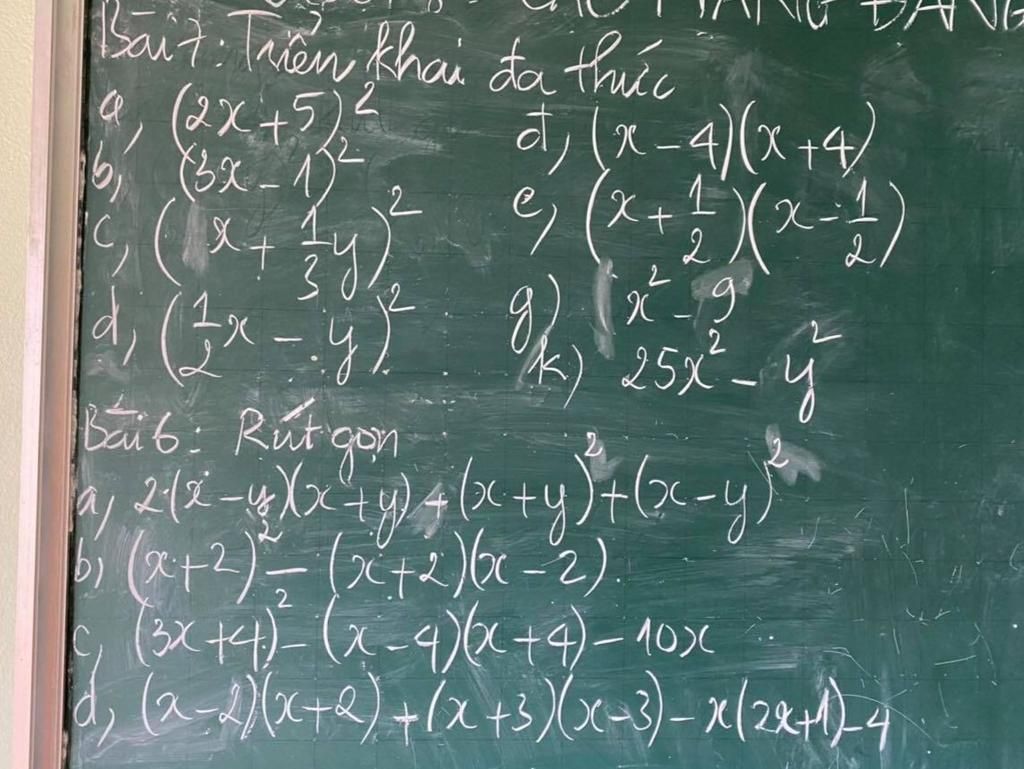 Bài 7: Triển khai đa thức
a, (2x+5)²
b, (3x-1)²
c, (x + 1/3 y)²
d, (1/2 x - y)²
đ, (x-4)(x+4)
e, (x + 1/2)(x - 1/2)
g) x² - 9
k) 25x² - y²
Bài 6: Rút gọn
a, 2(x-y)(x+y)+(x+y)²+(x-y)²
b, (x+2)² - (x+2)(x-2).
c, (3x+4)² - (x-4)(x+4) - 10x
d, (x-2)(x+2)+(x+3)(x-3) - x(2x+1)-4